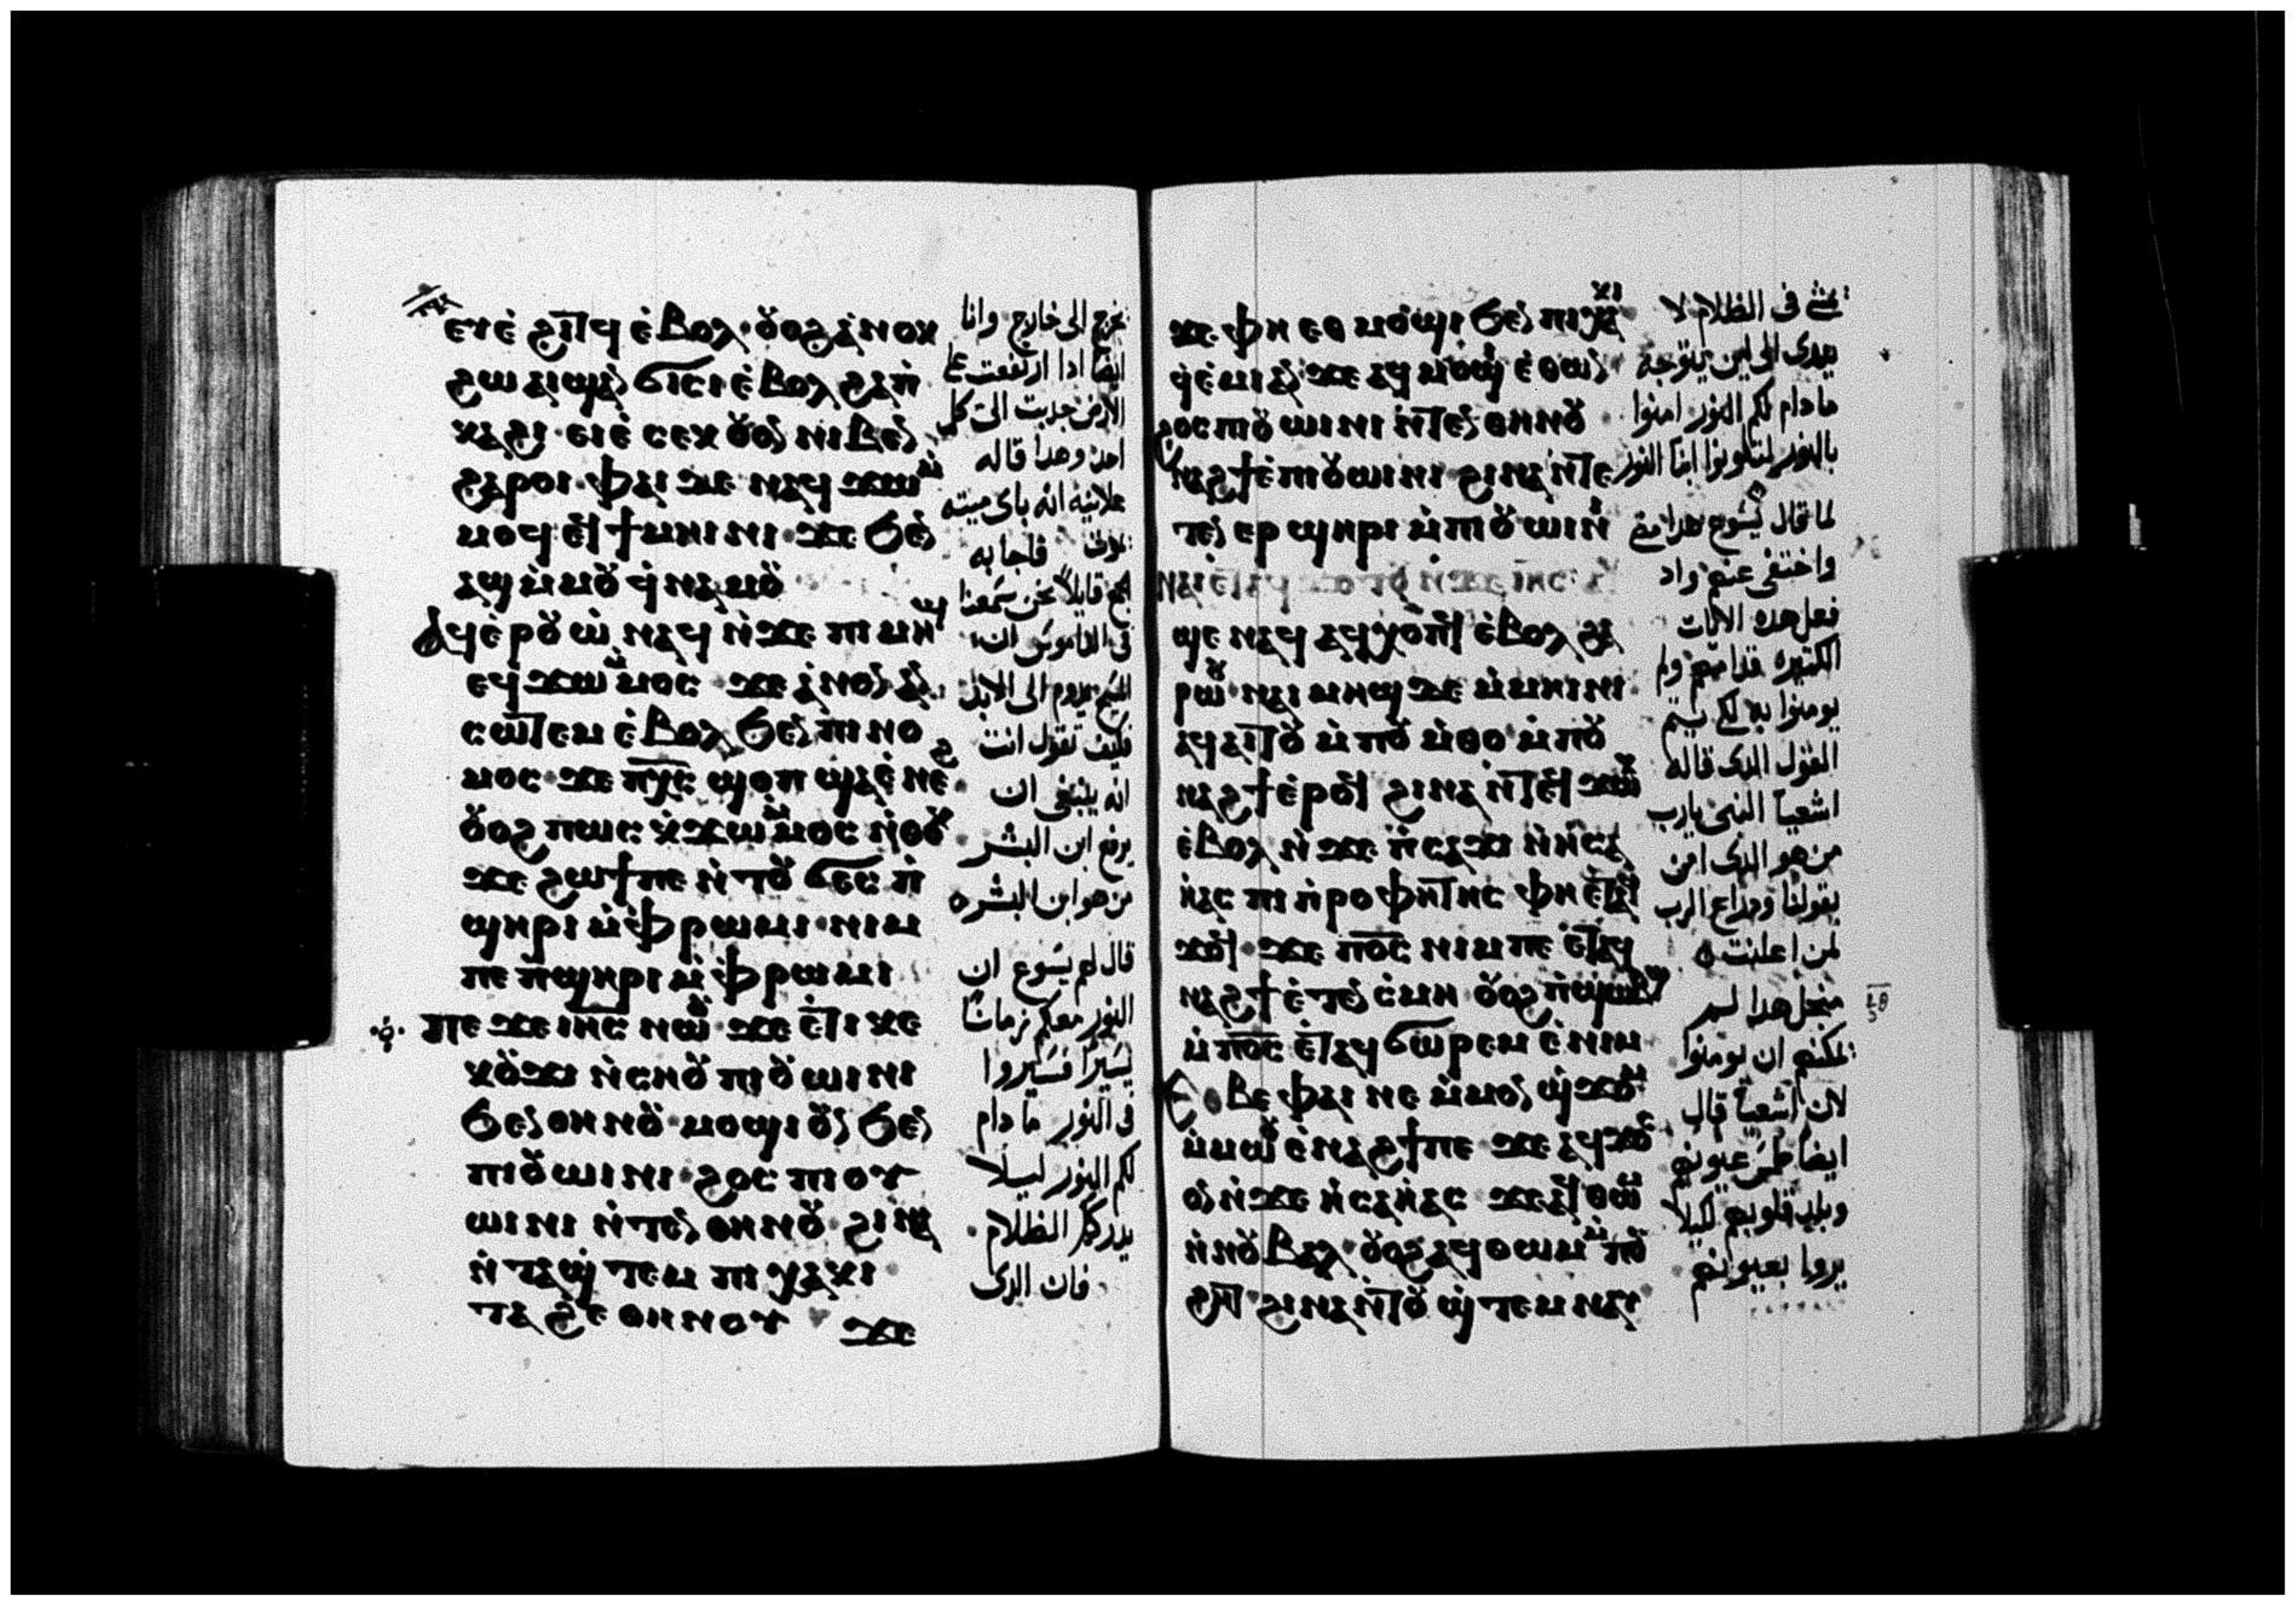 ⲉⲩⲉ̀ϩⲓⲧϥ ⲉ̀ⲃⲟⲗ· ⲟⲩⲟϩ ⲁ̀ⲛⲟⲕ
ϩⲱ ⲁⲓϣⲁⲛϭⲓⲥⲓ ⲉ̀ⲃⲟⲗ ϩⲁ ⲡ̀
ⲕⲁϩⲓ· ⲉⲓⲉ̀ ⲥⲉⲕ ⲟⲩⲟⲛ ⲛⲓⲃⲉⲛ
ϩⲁⲣⲟⲓ· ⲫⲁⲓ ⲇⲉ ⲛⲁϥϫⲱⲙ̀
ⲙⲟϥ ⲉϥϯⲙⲏⲓⲛⲓ ϫⲉ ϧⲉⲛ
ⲁϣ ⲙ̀ⲙⲟⲩ ϥ̀ⲛⲁⲙⲟⲩ
ⲁϥⲉ̀ⲣⲟⲩⲱ̀ ⲛⲁϥ ⲛ̀ϫⲉ ⲡⲓⲙⲏϣ
ⲉϥϫⲱⲙ̀ⲙⲟⲥ ϫⲉ ⲁ̀ⲛⲟⲛ ⲁⲛ
ⲥⲱⲧⲉⲙ ⲉ̀ⲃⲟⲗ ϧⲉⲛ ⲡⲓⲛⲟ
ⲙⲟⲥ ϫⲉ ⲡⲭ̅ⲥ̅ ϣⲟⲡ ϣⲁ ⲉ̀ⲛⲉϩ
ⲟⲩⲟϩ ⲡⲱⲥ ⲕ̀ϫⲱⲙ̀ⲙⲟⲥ ⲛ̀ⲑⲟⲕ
ϫⲉ ϩⲱϯ ⲡⲉ ⲛ̀ⲧⲟⲩϭⲉⲥ ⲡ̀
ϣⲏⲣⲓ ⲙ̀ⲫⲣⲱⲙⲓ· ⲛⲓⲙ
ⲡⲉ ⲡ̀ϣⲏⲣⲓ ⲙ̀ⲫⲣⲱⲙⲓ
ⲡⲉϫⲉ ⲓⲏ̅ⲥ̅ ⲛⲱⲟⲩ ϫⲉ ⲉ̀ⲧⲓ ⲕⲉ
ⲕⲟⲩϫⲓ ⲛ̀ⲥⲏⲟⲩ ⲡⲓⲟⲩⲱⲓⲛⲓ
ϧⲉⲛ ⲑⲏⲛⲟⲩ· ⲙⲟϣⲓ ⲟⲩⲛ ϧⲉⲛ
ⲡⲓⲟⲩⲱⲓⲛⲓ· ϩⲟⲥ ⲡⲓⲟⲩ
ⲱⲓⲛⲓ ⲛ̀ⲧⲉⲛ ⲑⲏⲛⲟⲩ· ϩⲓⲛⲁ
ⲛ̀ⲧⲁϣ̀ⲧⲉⲙ ⲡⲓⲭⲁⲕⲓ
ⲧⲁϩⲉ ⲑⲏⲛⲟⲩ
ϫⲉ
يخرج الى خارج وانا
ايضا ادا ارتفعت عن
الارض جدبت الي كل
احد وهدا قاله
علانية انه باى ميته
يموت فاجابه
الجمع قايلا نحن سمعنا
فى الناموس ان
المسيح يدوم الى الابد
فكيف تقول انت
انه ينبغى ان
يرفع ابن البشر
من هو ابن البشر
قال لهم يسوع ان
النور معكم زمانا
يسيرا فسيروا
فى النور ما دام
لكم النور ليلا
يدرككم الظلام
فان الدى
ϫⲉ ⲫⲏ ⲉⲑⲙⲟϣⲓ ϧⲉⲛ ⲡⲓⲭⲁⲕⲓ
ϥ̀ⲉ̀ⲙⲓ ⲁⲛ ϫⲉ ⲁϥⲙⲟϣⲓ ⲉ̀ⲑⲱⲛ
ϩⲟⲥ ⲡⲓⲟⲩⲱⲓⲛⲓ ⲛ̀ⲧⲉⲛ ⲑⲏⲛⲟⲩ
ⲛⲁϩϯ ⲉ̀ⲡⲓⲟⲩⲱⲓⲛⲓ ϩⲓⲛⲁ ⲛ̀ⲧⲉ
ⲧⲉⲛⲉⲣϣⲏⲣⲓ ⲙ̀ⲡⲓⲟⲩⲱⲓⲛⲓ
ⲛⲁⲓ ⲉ̀ⲧⲁϥϫⲟⲧⲟⲩ ⲛ̀ϫⲉ ⲓⲏ̅ⲥ̅
ϣⲉ ⲛⲁϥ ⲁϥⲭⲟⲡϥ ⲉ̀ⲃⲟⲗ ϩⲁ
ⲣⲱⲟⲩ· ⲛⲁⲓ ⲙⲏϣ ⲇⲉ ⲙ̀ⲙⲏⲓⲛⲓ
ⲁϥⲁⲓⲧⲟⲩ ⲙ̀ⲡⲟⲩⲙ̀ⲑⲟ ⲙ̀ⲡⲟⲩ
ⲛⲁϩϯ ⲉ̀ⲣⲟϥ ϩⲓⲛⲁ ⲛ̀ⲧⲉϥϫⲱⲕ
ⲉ̀ⲃⲟⲗ ⲛ̀ϫⲉ ⲡ̀ⲥⲁϫⲓ ⲛ̀ⲏ̀ⲥⲁ
ⲏ̀ⲁⲥ ⲡⲓⲡ̀ⲣⲟⲫⲏⲧⲏⲥ ⲫⲏ ⲉ̀ⲧⲁϥ
ϫⲟϥ· ϫⲉ ⲡ̅ⲟ̅ⲥ̅ ⲛⲓⲙ ⲡⲉ ⲉ̀ⲧⲁϥ
ⲛⲁϩϯ ⲉ̀ⲧⲉⲛⲥ̀ⲙⲏ ⲟⲩⲟϩ ⲡ̀ϣⲱⲃϣ
ⲙ̀ⲡ̅ⲟ̅ⲥ̅ ⲉ̀ⲧⲁϥϭⲱⲣⲡ ⲉ̀ⲛⲓⲙ
ⲉⲑⲃⲉ ⲫⲁⲓ ⲛⲉ ⲙ̀ⲙⲟⲛ ϣ̀ϫⲟⲙ
ⲙ̀ⲙⲱⲟⲩ ⲉ̀ⲛⲁϩϯ ⲡⲉ ϫⲉ ⲁϥϫⲟⲥ
ⲟⲛ ⲛ̀ϫⲉ ⲏ̀ⲥⲁⲏ̀ⲁⲥ ϫⲉ ⲁϥⲑⲱⲙ
ⲛ̀ⲛⲟⲩⲃⲁⲗ· ⲟⲩⲟϩ ⲁϥⲑⲱⲙ ⲙ̀ⲡⲟⲩ
ϩⲏⲧ ϩⲓⲛⲁ ⲛ̀ⲧⲟⲩϣ̀ⲧⲉⲙⲛⲁⲩ
يمشى فى الظلام لا
يدرى الى اين يتوجه
ما دام لكم النور امنوا
بالنور لتكونوا ابنا النور
لما قال يسوع هدا مضى
واختفى عنهم واد
فعل هده الايات
الكتيره قدامهم ولم
يومنوا به لكى يتم
القول الدى قاله
اشعيا النبى يارب
من هو الدى امن
بقولنا ودراع الرب
لمن اعلنت
من اجل هدا ليس
يمكنهم ان يومنوا
لان اشعيا قال
ايضا طمس عيونهم
قلوبهم ليلا
يروا بعيونهم